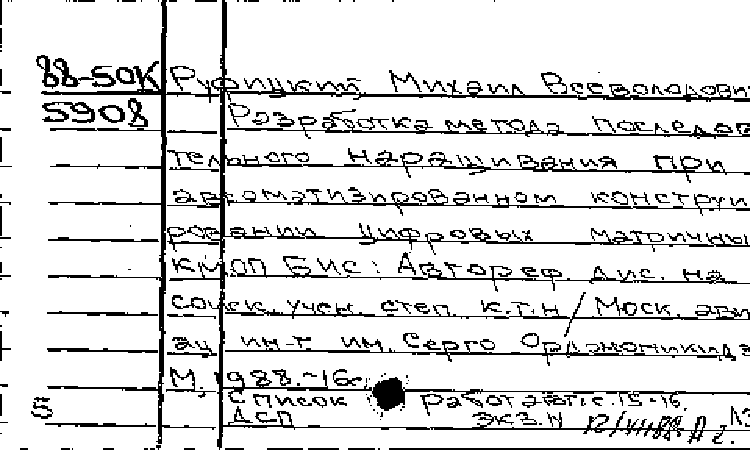 88-50К Руфицкий Михаил Всеволодови
5908 Разработка метода последова
тельного наращивания при
автоматизированном конструи
ровании цифровых матричны
КМОП БИС: Автореф. дис. на
соиск. учен. степ. к.т.н / Моск. ави
ац. ин-т им. Серго Орджоникидз
М., 1988.-16с.
5 Список работ авт.: с. 15-16.
ДСП Экз. N 12/VII88